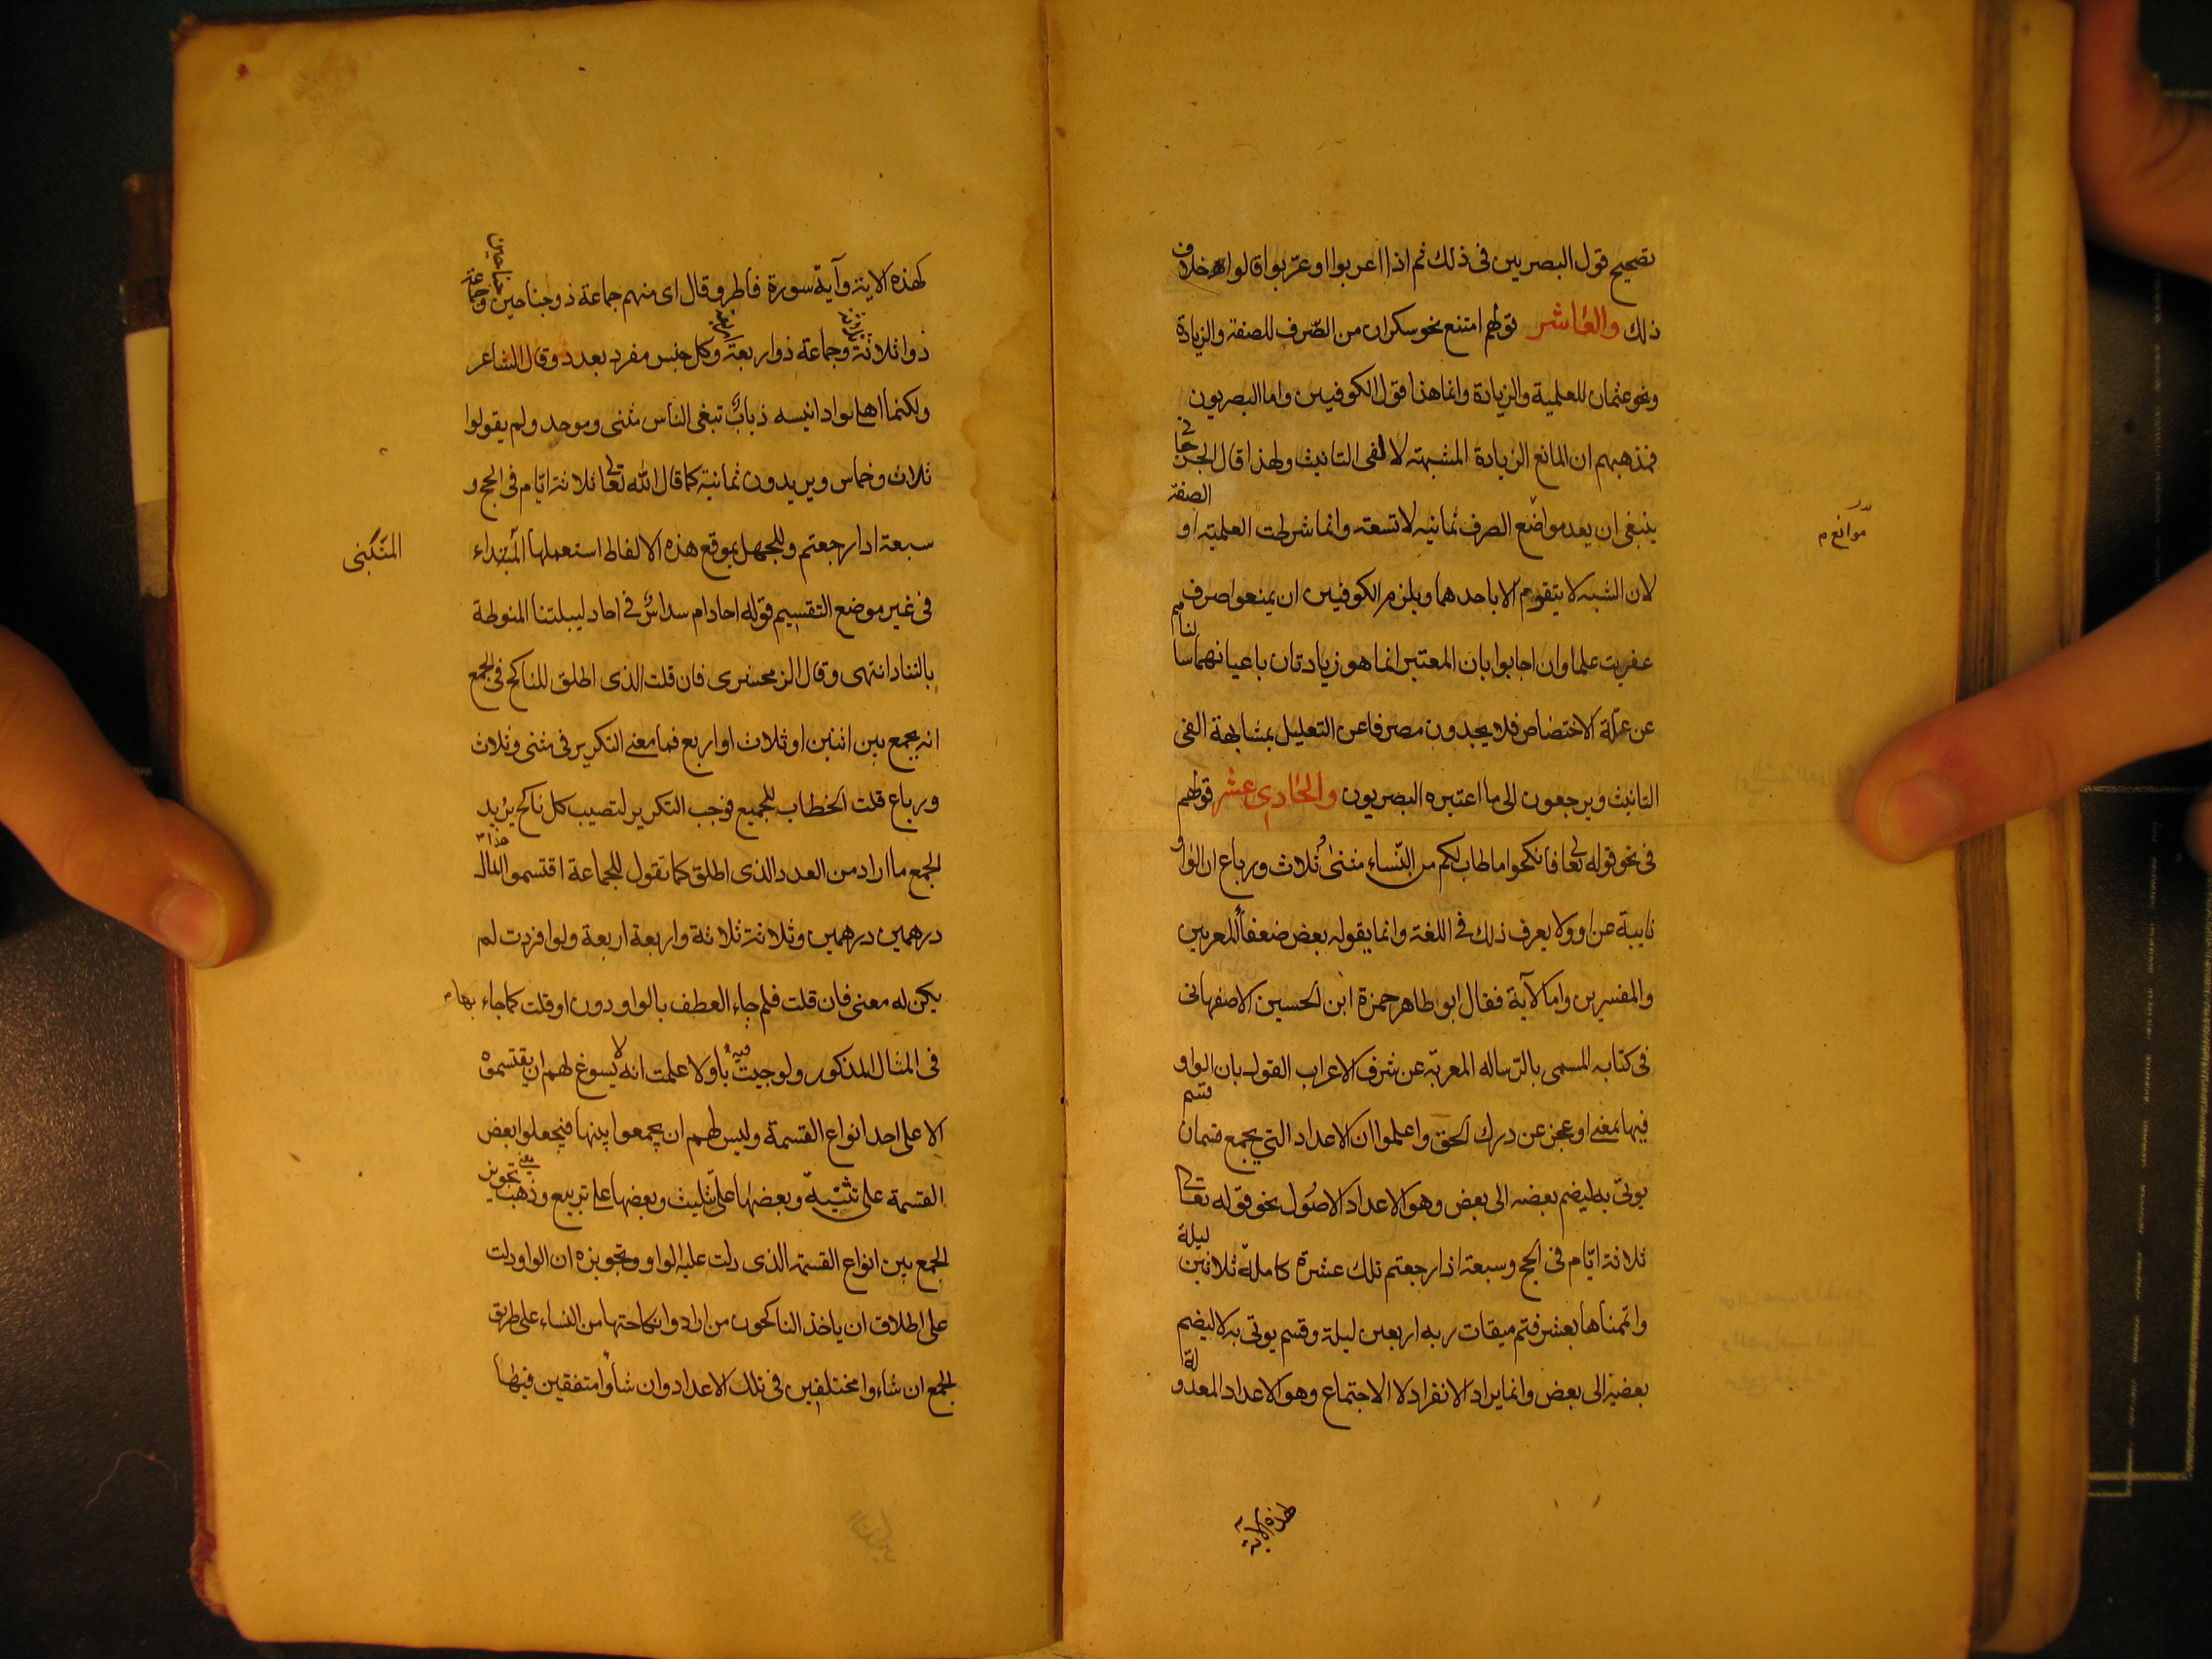 تصحيح قول البصريين فى ذلك ثم اذا اعربوا او عرّبوا قالوا خلاف
ذلك والعاشر قولهم امتنع نحو سكران من الصّرف للصفة والزيادة
ونحو عثمان للعلمية والزيادة وانما هذا قول الكوفيين واما البصريون
فمذهبهم ان المانع الزيادة المشبهة لالفى التانيث ولهذا قال الجرجانى
ينبغى ان يعد مواضع الصرف ثمانيه لا تسعة وانما شرطت العلمية او الصفة
موانع م
لان الشبه لا يتقوم الا باحدهما ويلزم الكوفيين ان يمنعوا صرف
عفريت علما وان اجابوا بان المعتبر انما هو زيادتان باعيانهما سالناهم
عن علّة الاختصاص فلا يجدون مصرفا عن التعليل بمشابهة الفى
التانيث ويرجعون الى ما اعتبره البصريون والحادى عشر قولهم
فى نحو قوله تعا فانكحوا ما طاب لكم من النّساء مثنىٰ وثُلاث ورباع ان الواو
نايبة عن او ولا يعرف ذلك فى اللغة وانما يقوله بعض ضعفاء المعربين
والمفسرين واما الآية فقال ابو طاهر حمزة ابن الحسين الاصفهانى
فى كتابه المسمى بالرّساله المعربّه عن شرف الاعراب القول بان الواو
فيها بمعنى او عجز عن درك الحق واعلموا ان الاعداد التى يجمع قسمان قسم
يوتىّ به ليضم بعضه الى بعض وهو الاعداد الاصُول نحو قوله تعالى
ثلاثة ايّام فى الحج وسبعة اذا رجعتم تلك عشرة كاملة ثلاثين ليلة
واتممناها بعشر فتم ميقات ربه اربعين ليلة وقسم يوتى به لا ليضم
بعضه الى بعض وانما يراد الانفراد لا الاجتماع وهو الاعداد المعدولة
لهذه الآية
كهذه الاية وآية سورة فاطر وقال اى منهم جماعة ذو جناحين جناحين وجماعة
ذوا ثلاثة ثلاثة وجماعة ذوا ربعة اربعة وكل جنس مفرد بعدد وقال الشاعر
ولكنما اهلى بواد انيسه ذبابٌ تبغى الناس مثنى وموحد ولم يقولوا
ثلاث وخماس ويريدون ثمانية كما قال الله تعا ثلاثة ايّام فى الحج و
سبعة اذا رجعتم وللجهل بموقع هذه الالفاظ استعملها
المتنبى
فى غير موضع التقسيم قوله احاد ام سداسٌ فى احاد ليبلتنا المنوطة
بالتناد انتهى وقال الزمخشرى فان قلت الذى اطلق للناكح فى الجمع
انه يجمع بين اثنين او ثلاث او اربع فما معنى التكرير فى مثنى وثلاث
ورباع قلت الخطاب للجميع فوجب التكرير لتصيب كل ناكح يريد
الجمع ما اراد من العدد الذى اطلق كما تقول للجماعة اقتسموا هذا المال
درهمين درهمين وثلاثة ثلاثة واربعة اربعة ولو افردت لم
يكن له معنى فان قلت فلم جاء العطف بالواو دون او قلت كما جاء بها
فى المثال المذكور ولو جيت فيه باو لاعلمت انه لا يسوغ لهم ان يقتسموه
الا على احد انواع القسمة وليس لهم ان يجمعوا بينها فيجعلوا بعض
القسمة على تثنية وبعضها على تثليث وبعضها على تربيع وذهب معنى تجويز
الجمع بين انواع القسمة الذى دلت عليه الواو وتجويزه ان الواو دلت
على اطلاق ان ياخذ الناكحون من ارادوا نكاحتها من النساء على طريق
الجمع ان شاءوا مختلفين فى تلك الاعداد وان شاوا متفقين فيها